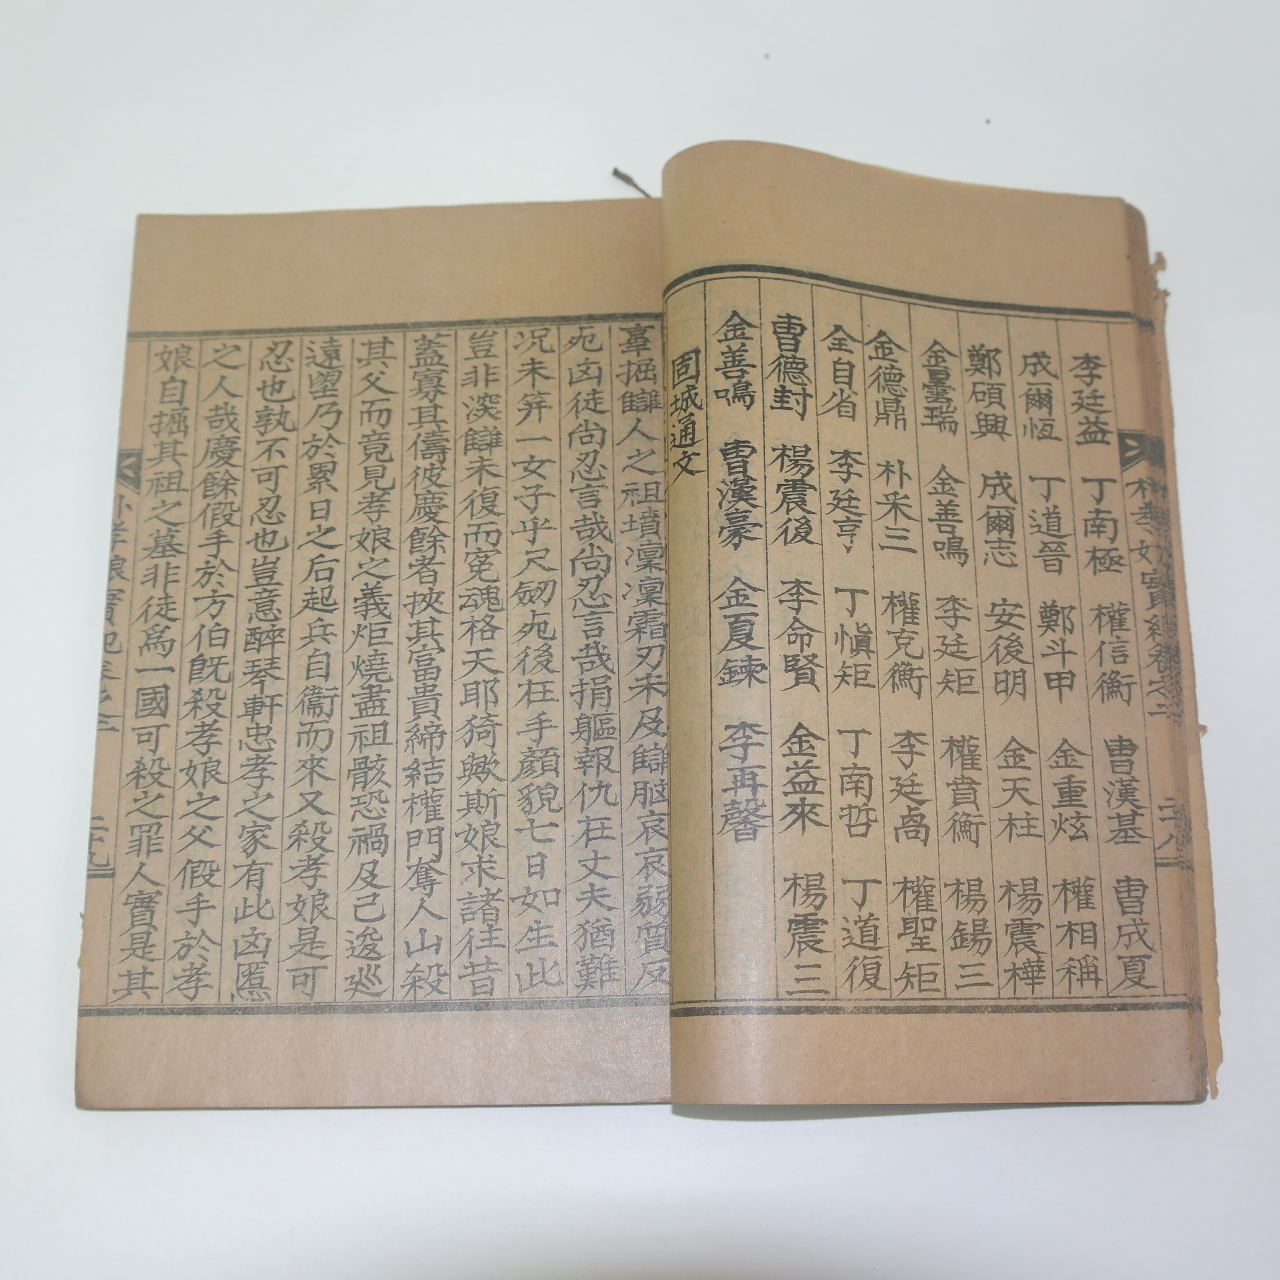 李廷益 丁南極 權信衡 曺漢基 曺成夏
成爾恆 丁道晉 鄭斗甲 金重炫 權相稱
鄭碩興 成爾志 安後明 金天柱 楊震樺
金曇瑞 金善鳴 李廷矩 權賁衡 楊錫三
金德鼎 朴采三 權克衡 李廷卨 權聖矩
全自省 李廷亨 丁愼矩 丁南哲 丁道復
曺德封 楊震後 李命賢 金益來 楊震三
金善鳴 曺漢豪 金夏鍊 李再馨
固城通文
辜掘讎人之祖墳凜凜霜刃未及讎脳哀哀弱質反
死凶徒尙忍言哉尙忍言哉捐軀報仇在丈夫猶難
况未笄一女子乎尺劒死後在手顔貌七日如生此
豈非深讎未復而寃魂格天耶猗歟斯娘求諸往昔
蓋寡其儔彼慶餘者挾其富貴締結權門奪人山殺
其父而竟見孝娘之義炬燒盡祖骸恐禍及己逡巡
遠望乃於累日之后起兵自衞而來又殺孝娘是可
忍也孰不可忍也豈意醉琴軒忠孝之家有此凶慝
之人哉慶餘假手於方伯旣殺孝娘之父假手於孝
娘自掘其祖之墓非徒爲一國可殺之罪人實是其
朴孝娘實紀卷之二 二十九